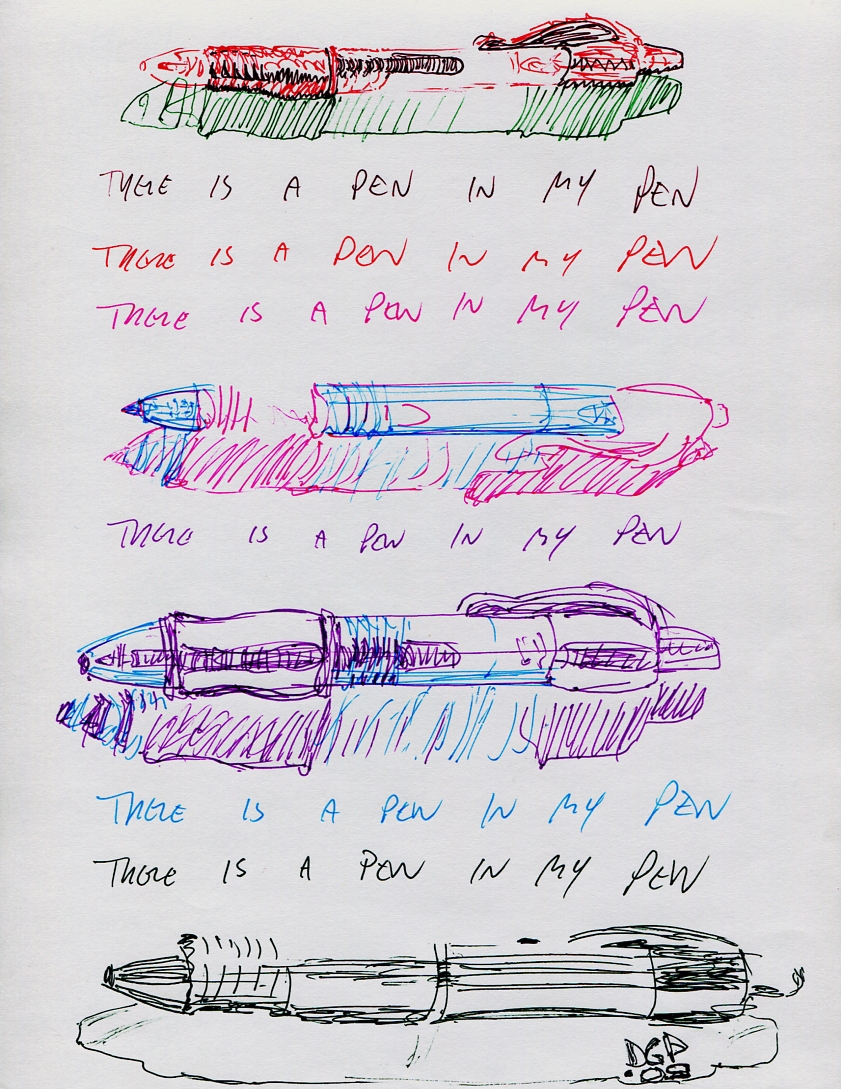 THERE IS A PEN IN MY PEN
THERE IS A PEN IN MY PEN
THERE IS A PEN IN MY PEN
THERE IS A PEN IN MY PEN
THERE IS A PEN IN MY PEN
THERE IS A PEN IN MY PEN
DGP
'08